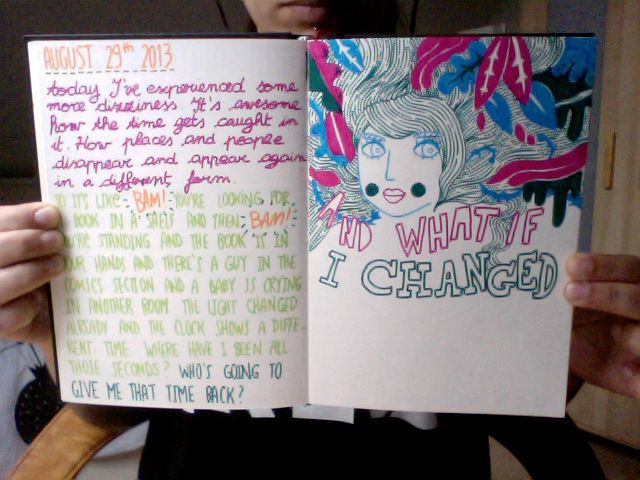 AUGUST 29th 2013
today I've experienced some
more dizziness. It's awesome
how the time gets caught in
it. How places and people
disappear and appear again
in a different form.
SO IT'S LIKE BAM! YOU'RE LOOKING FOR
A BOOK IN A SHELF AND THEN BAM!
YOU'RE STANDING AND THE BOOK IS IN
YOUR HANDS AND THERE'S A GUY IN THE
COMICS SECTION AND A BABY IS CRYING
IN ANOTHER ROOM. THE LIGHT CHANGED
ALREADY AND THE CLOCK SHOWS A DIFFE-
RENT TIME. WHERE HAVE I BEEN ALL
THOSE SECONDS? WHO'S GOING TO
GIVE ME THAT TIME BACK?
AND WHAT IF
I CHANGED